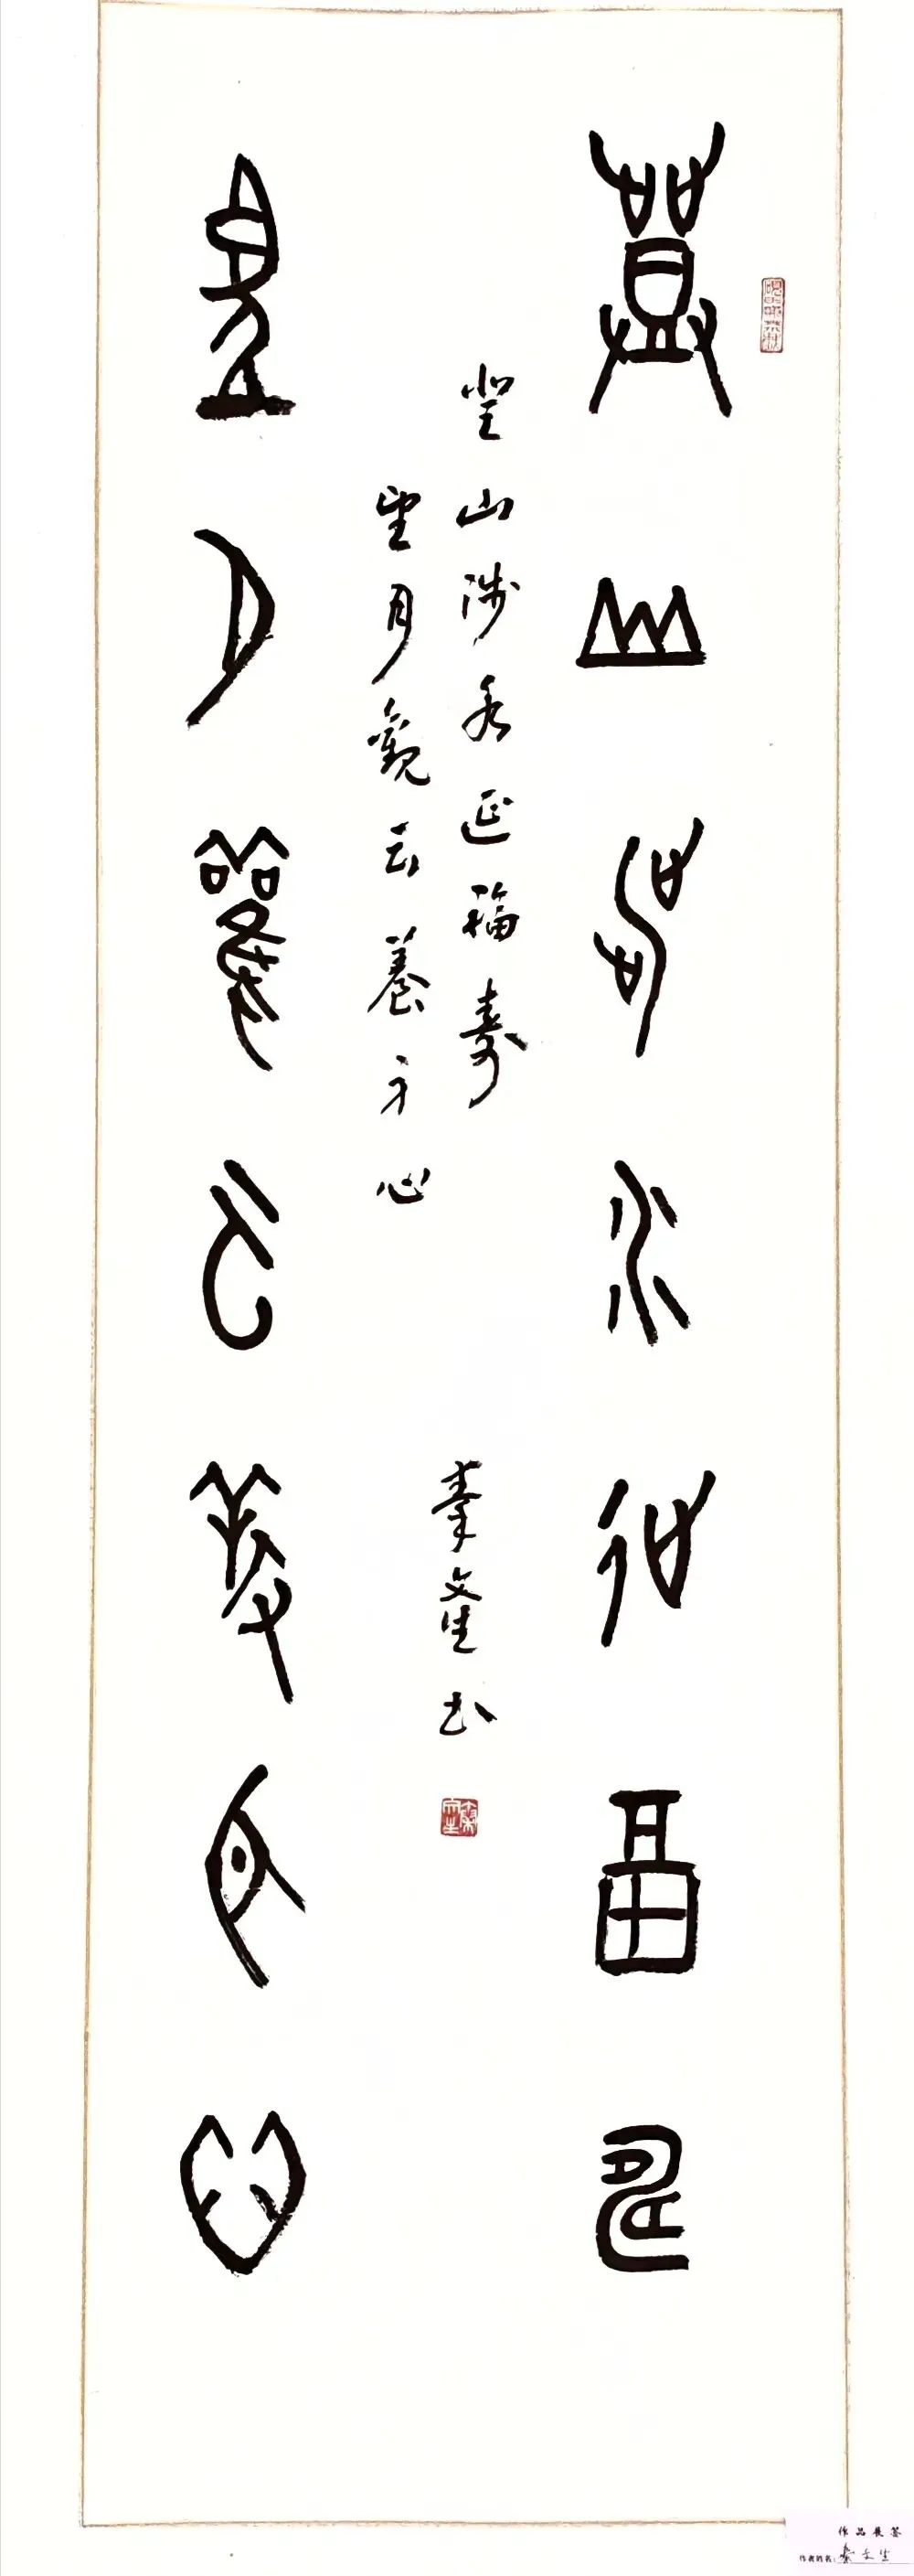 登山涉水延福寿
登山涉水延福寿
望月观云养身心
望月觀云養身心
秦文生书
秦文生
作品展签
作者姓名：秦文生